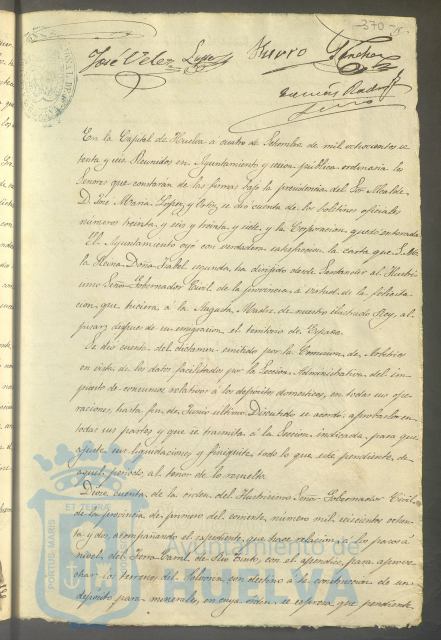 370
José Velez Lopez Kurro Sanchez
En la Capital de Huelva a cuatro de Setiembre de mil ochocientos se
tenta y seis Reunidos en Ayuntamiento y sesion pública ordinaria los
Señores que constaran de las firmas bajo la presidencia del Sor. Alcalde
D. José Maria Lopez y Ortiz se dio cuenta de los boletines oficiales
números treinta y seis y treinta y siete y la Corporacion quedó enterada
El Ayuntamiento oyó con verdadera satisfaccion la carta que S. M.
la Reina Doña Isabel segunda ha dirigido desde Santander al Ilustrí
simo Señor Gobernador Civil de la provincia á virtud de la felicita
cion que hiciera á la Augusta Madre de nuestro ilustrado Rey, al
pisar despues de su emigracion el territorio de España.
Se dió cuenta del dictamen emitido por la Comision de Arbitrios
en vista de los datos facilitados por la Seccion Administrativa del im
puesto de consumos relativos á los depósitos domesticos, en todas sus ope
raciones, hasta fin de Junio ultimo. Discutido se acordó aprobarlo en
todas sus partes y que se tramita á la Seccion indicada, para que
ajuste sus liquidaciones y finiquite todo lo que este pendiente, de
aquel periodo, al tenor de lo resuelto.
Diose cuenta de la orden del Ilustrisimo Señor Gobernador Civil
de la provincia de primero del corriente, número mil seiscientos ochen
ta y dos, acompañando el espediente que hace relacion á los pasos á
nivel del Ferro Carril de Rio Tinto, con el apendice, para aprove
char los terrenos del Polvorin con destino á la construccion de un
depósito para minerales, en cuya orden se espresa que pendiente
Ayuntamiento de
HUELVA
PORTUS MARIS
ET TERRÆ